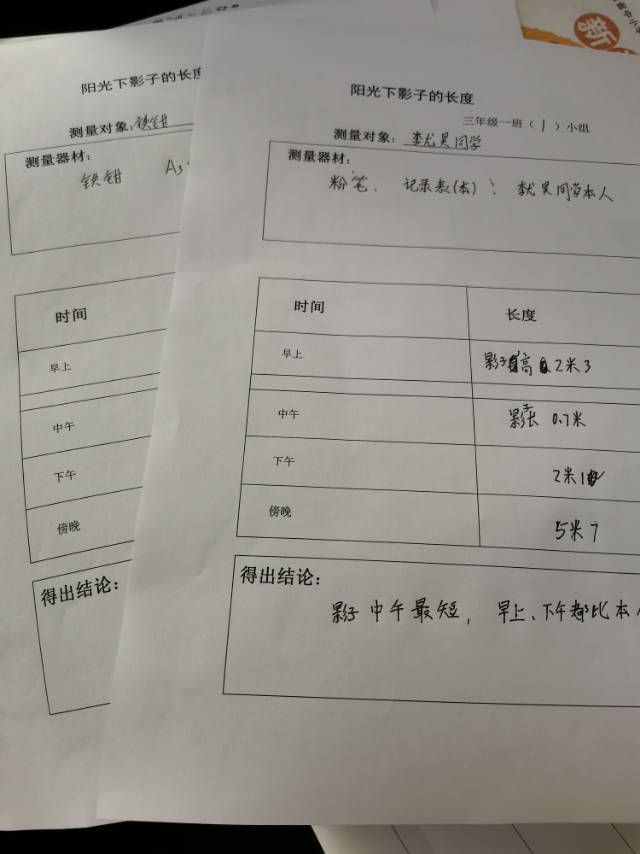 阳光下影子的长度
测量对象:铁钳
测量器材:
铁钳
时间
早上
中午
下午
傍晚
得出结论:
阳光下影子的长度
三年级一班(1)小组
测量对象:李尤昊同学
测量器材:
粉笔、记录表(本)、李尤昊同学本人
时间 长度
早上 影子高 2米3
中午 影长 0.7米
下午 2米1
傍晚 5米7
得出结论:
影子中午最短,早上、下午都比本